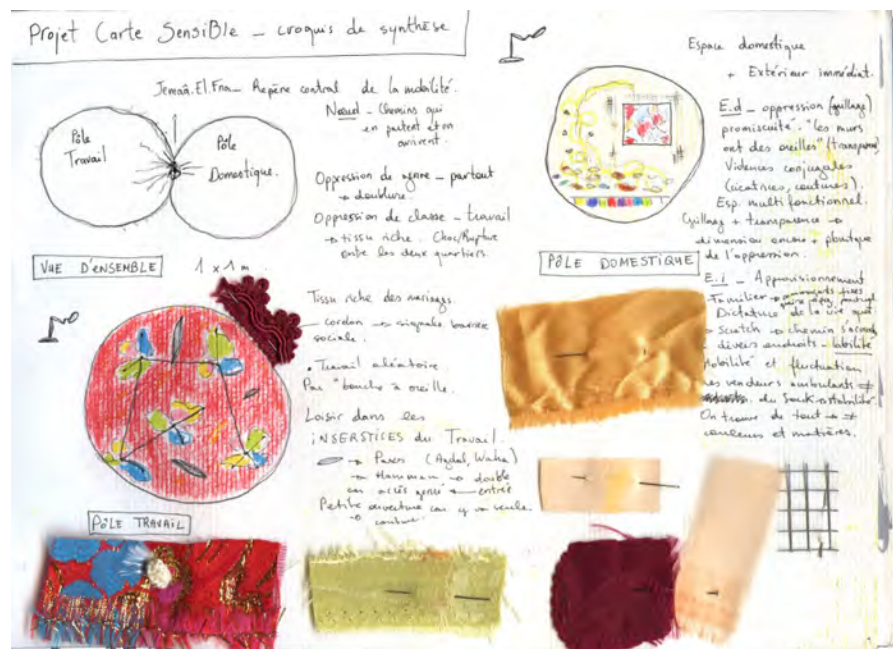 Projet Carte SensiBle – croquis de synthèse
Jemaâ.El.Fna – Repère central de la mobilité.
Nœud – Chemins qui
en partent et on
arrivent.
Pôle
Travail
Pôle
Domestique.
Oppression de genre – partout
→ doublure.
Oppression de classe – travail
→ tissu riche. Choc/Rupture
entre les deux quartiers.
VUE D'ENSEMBLE
1 x 1 m
Tissu riche des mariages.
– cordon → signale barrière
sociale.
• Travail aléatoire.
Par "bouche à oreille.
Loisir dans les
iNSERSTiCES du Travail.
→ Parcs (Agdal, Waha)
→ Hammam → double
car accès genré entrée
Petite ouverture car y va seule.
→ couture.
PÔLE TRAVAIL
Espace domestique
+ Extérieur immédiat.
E.d – oppression (grillage)
promiscuité. "les murs
ont des oreilles" (transparence)
Violences conjugales
(cicatrices, coutures).
Esp. multifonctionnel.
Grillage + transparence →
dimension encore + physique
de l'oppression.
PÔLE DOMESTIQUE
E.i – Approvisionnement
Familier →
Dictature de la vie
→ Scratch → chemin s'accroche
divers endroits –
Mobilité et fluctuation
des vendeurs ambulants ≠
du souk → stabilité
On trouve de tout → ≠
couleurs et matières.